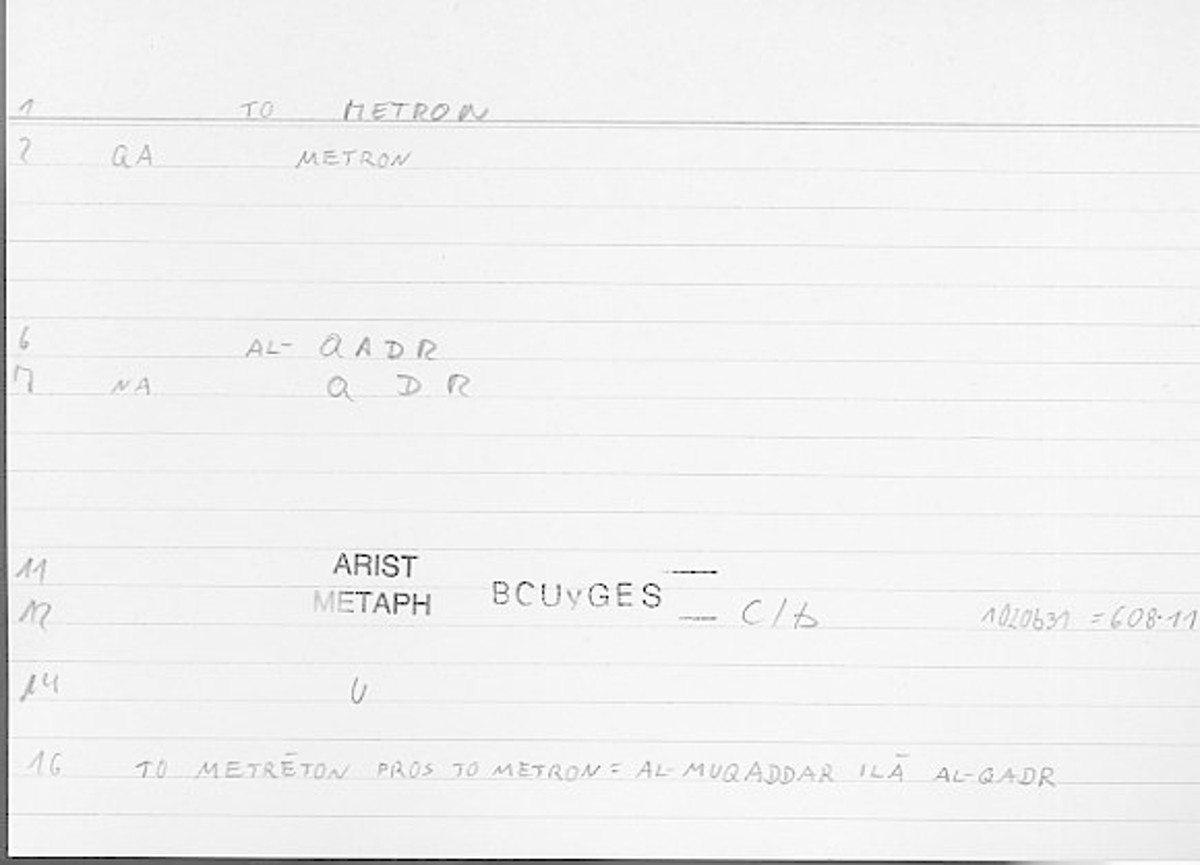 1 TO METRON
2 QA METRON
6 AL- QADR
7 NA Q D R
11 ARIST
BCUyGES —
12 METAPH — C/b 1020b31 = 608.11
14 U
16 TO METRĒTON PROS TO METRON = AL-MUQADDAR ILĀ AL-QADR